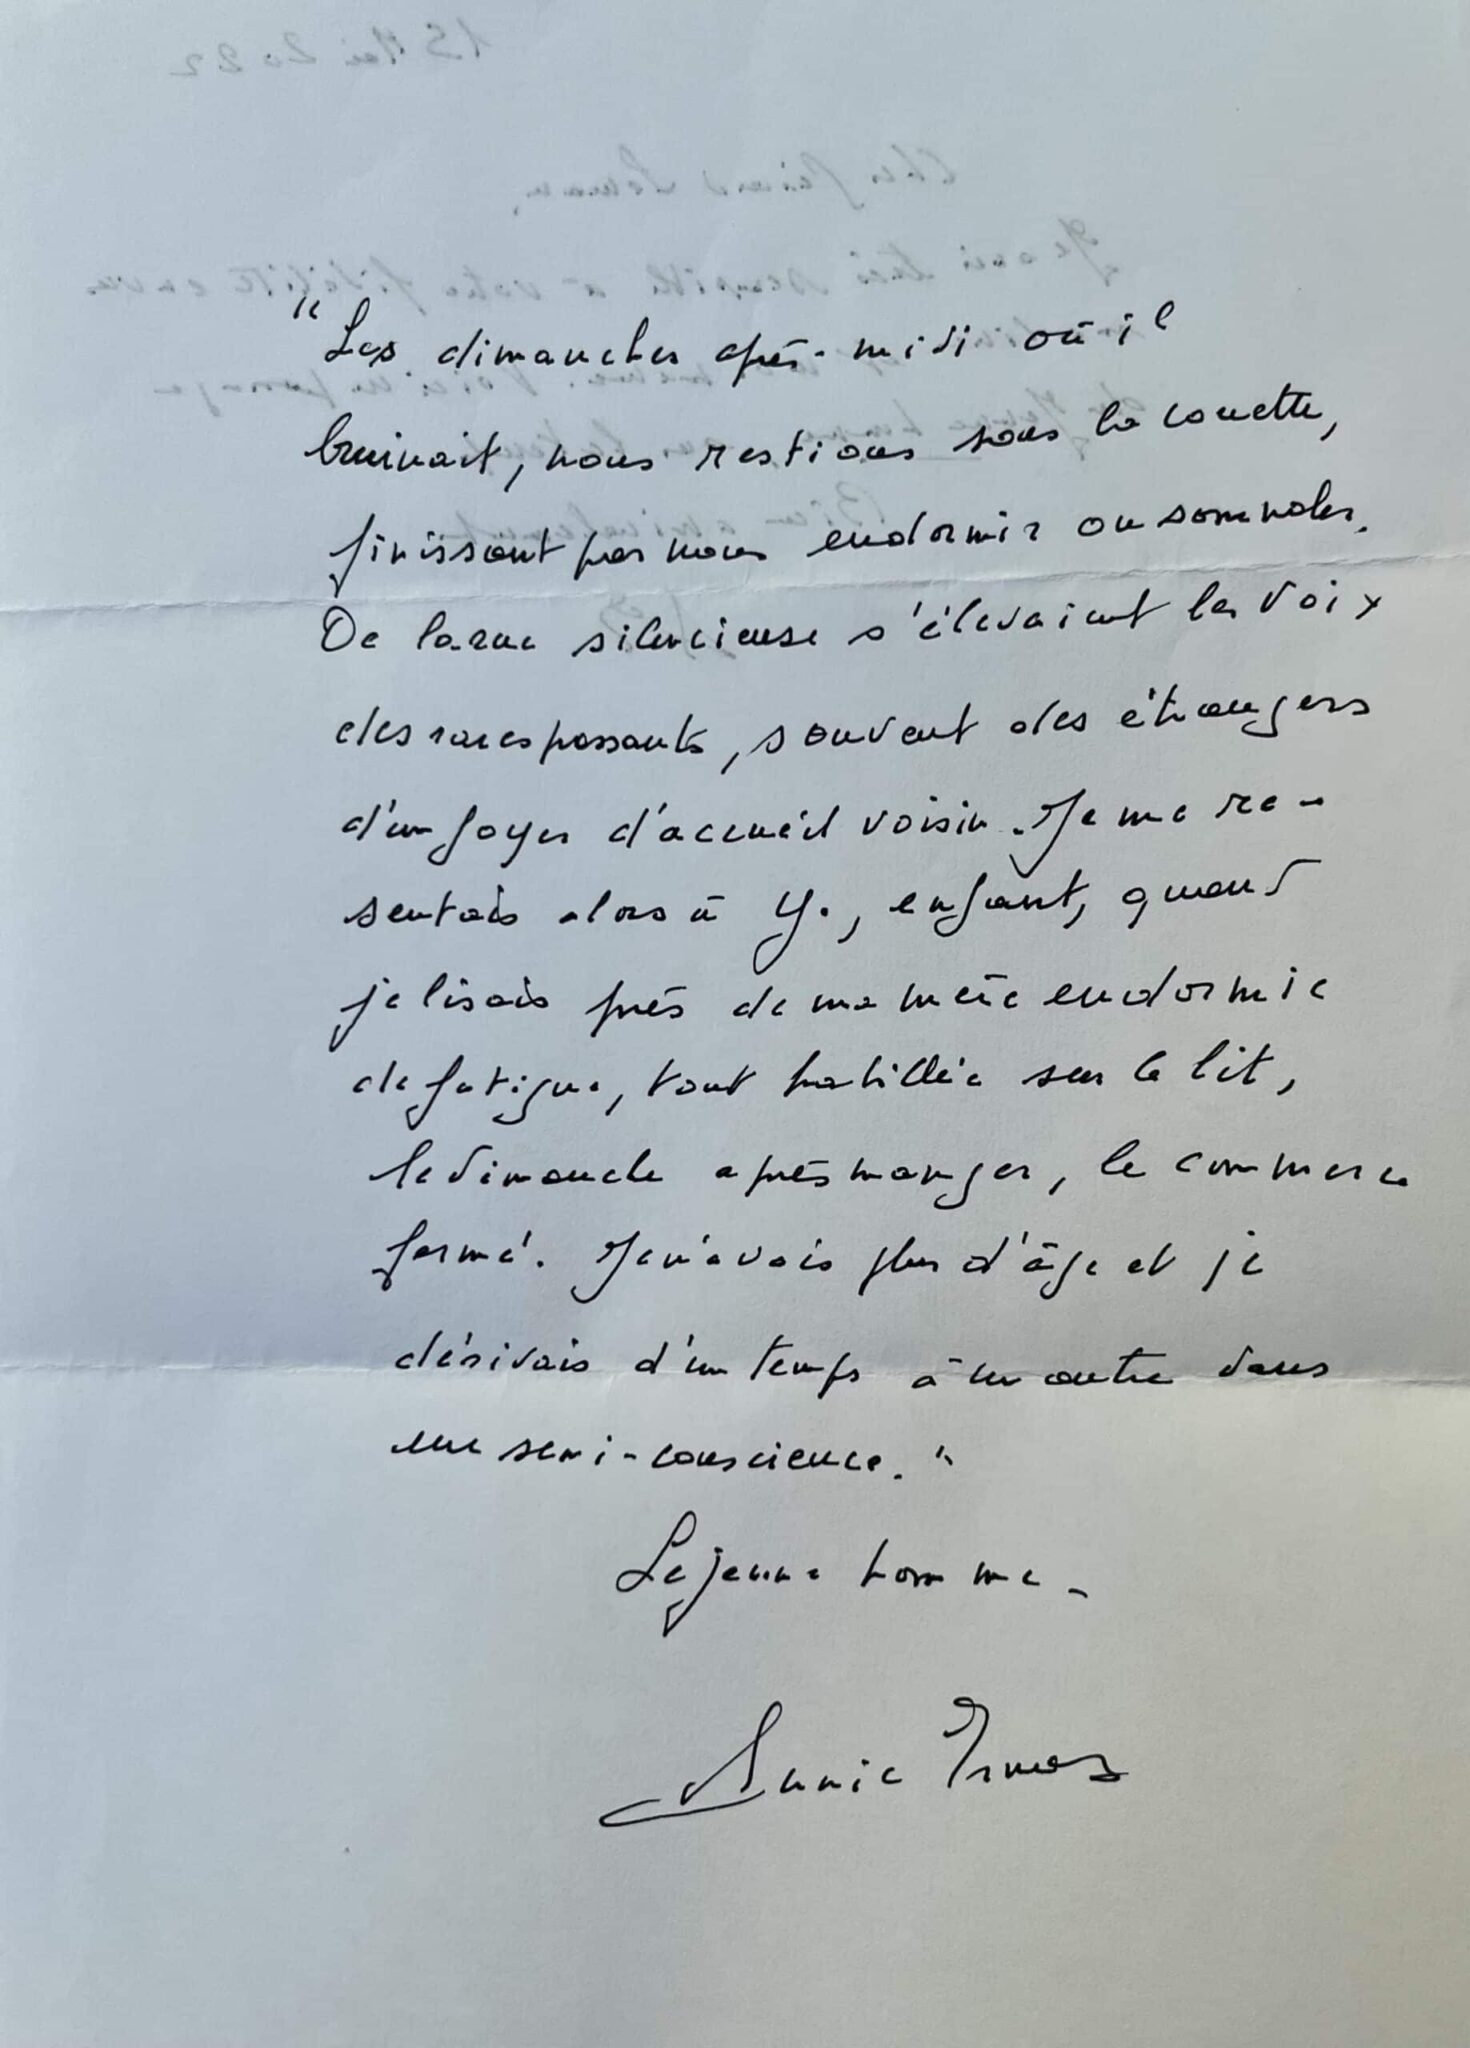 "Les dimanches après-midi où il
bruinait, nous restions sous la couette,
finissant par nous endormir ou somnoler.
De la rue silencieuse s'élevaient les voix
des rares passants, souvent des étrangers
d'un foyer d'accueil voisin. Je me re-
sentais alors à Y., enfant, quand
je lisais près de ma mère endormie
de fatigue, tout habillée sur le lit,
le dimanche après manger, le commerce
fermé. Je n'avais plus d'âge et je
dérivais d'un temps à un autre dans
une semi-conscience."
Le jeune homme -
Annie Ernaux
15 Mai 2022